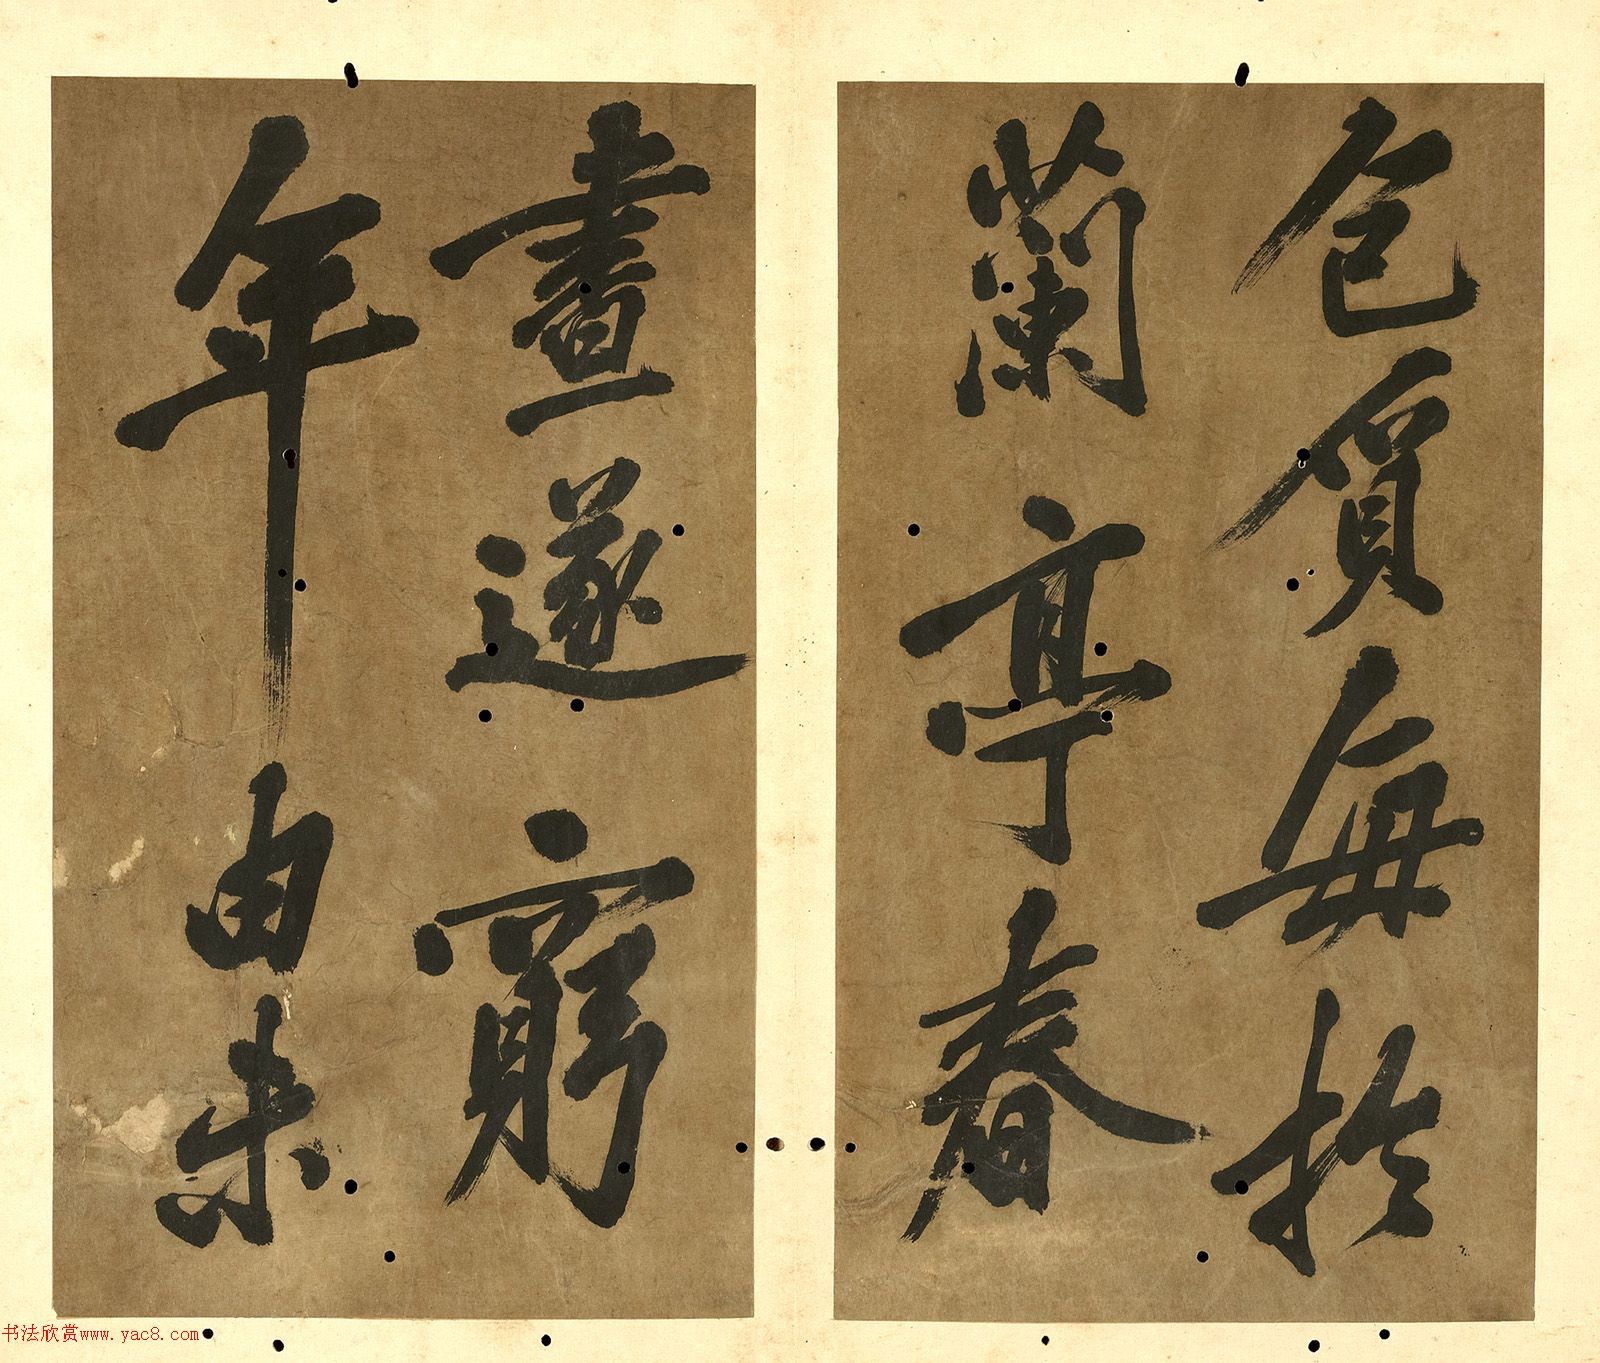 色質每於
蘭亭春
晝遂窮
年由來
书法欣赏www.yac8.com